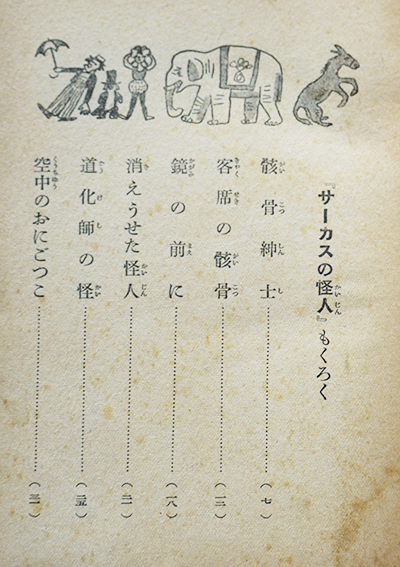 『サーカスの怪人』もくろく
骸骨紳士……………………(七)
客席の骸骨……………………(一三)
鏡の前に……………………(一八)
消えうせた怪人……………………(二一)
道化師の怪……………………(二五)
空中のおにごつこ……………………(三一)